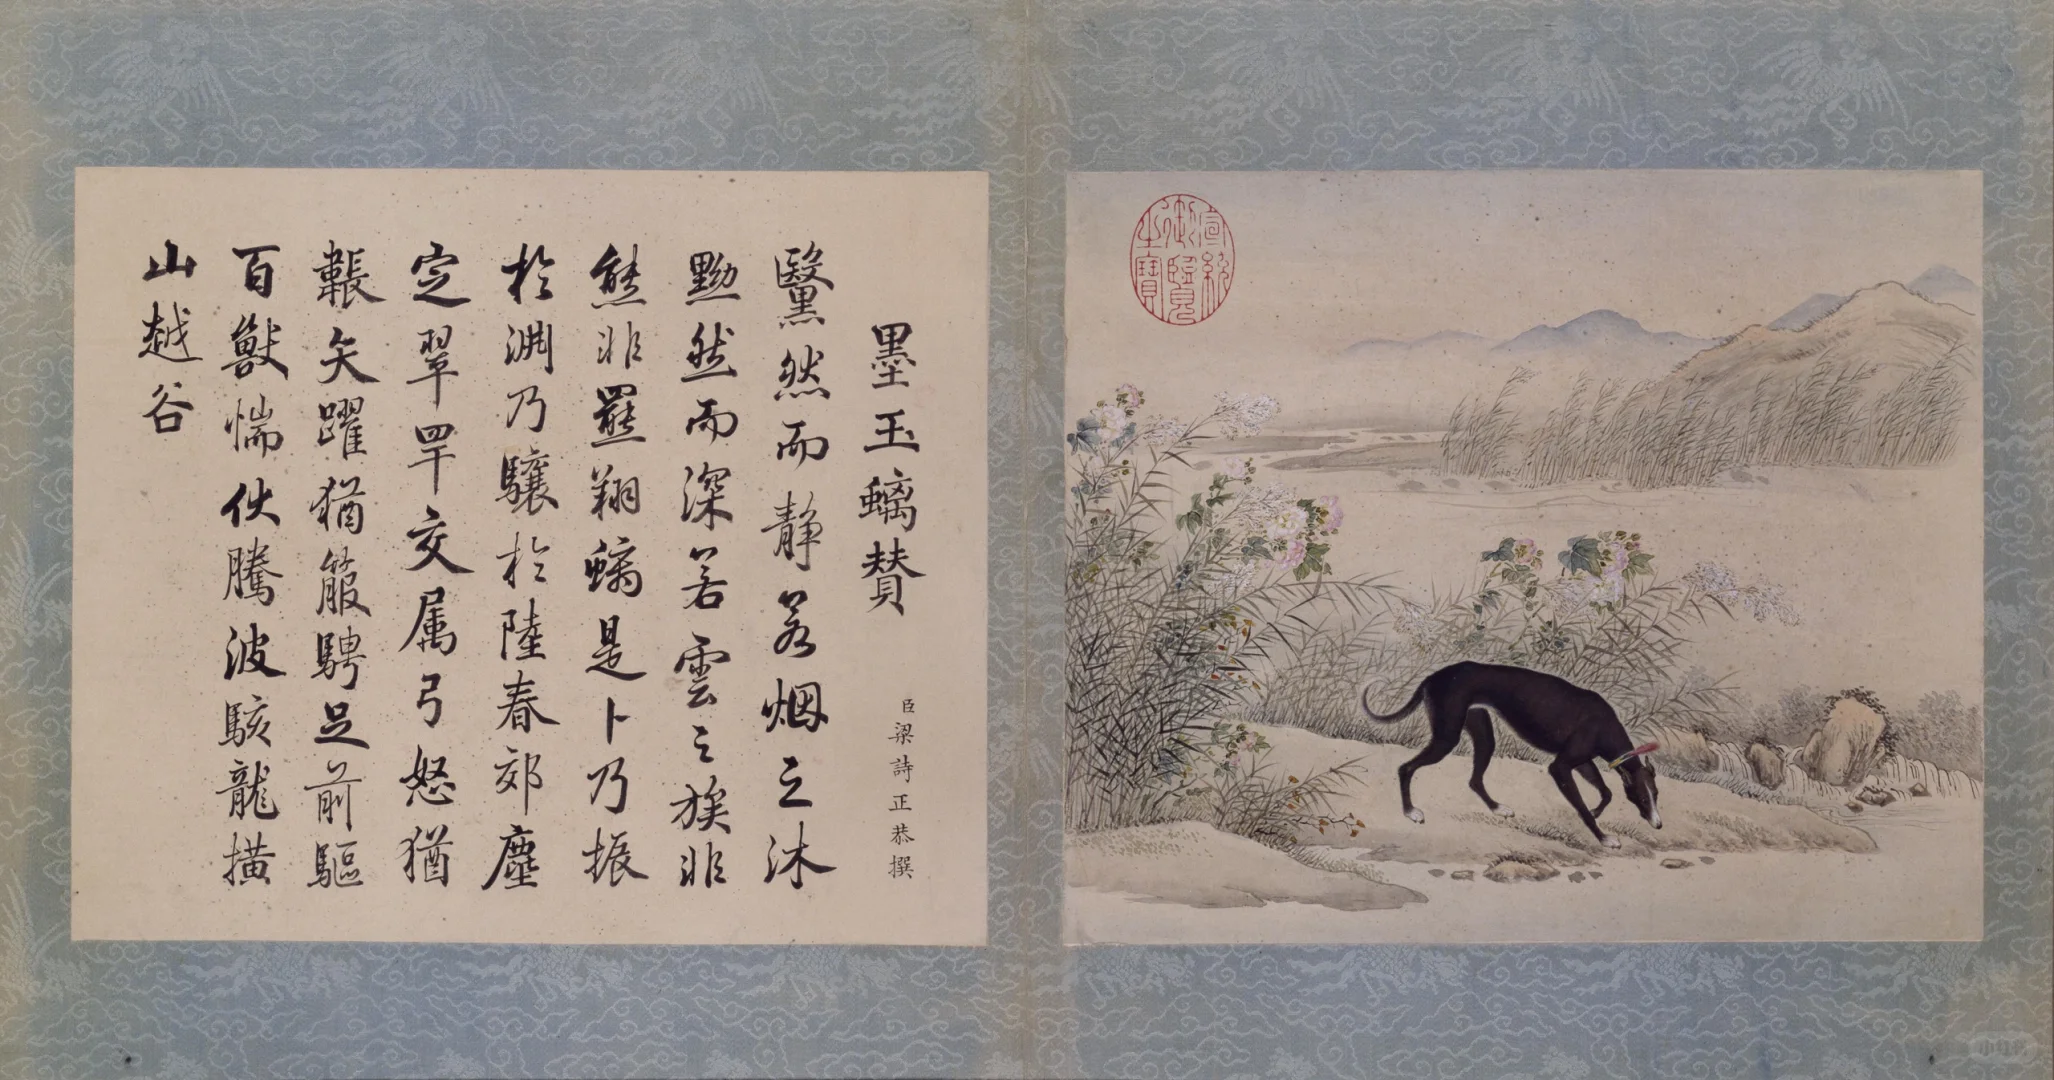 墨玉螭賛
臣梁詩正恭撰
黳然而静若烟之沐
黝然而深若雲之族非
熊非羆翔螭是卜乃振
於淵乃驤於陸春郊塵
定翠罕交属弓怒猶
韔矢躍猶箙騁足前驅
百獸惴伏騰波駭龍橫
山越谷
乾隆御覽之寶